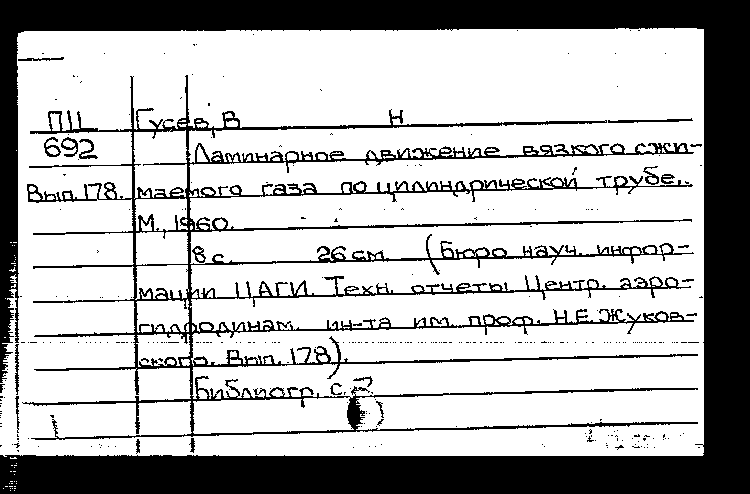 П11 Гусев, В Н
692 Ламинарное движение вязкого сжи-
Вып. 178. маемого газа по цилиндрической трубе.
М., 1960.
8 с. 26 см (Бюро науч. инфор-
мации ЦАГИ. Техн. отчеты Центр. аэро-
гидродинам. ин-та им. проф. Н.Е. Жуков-
ского. Вып. 178).
Библиогр. с.